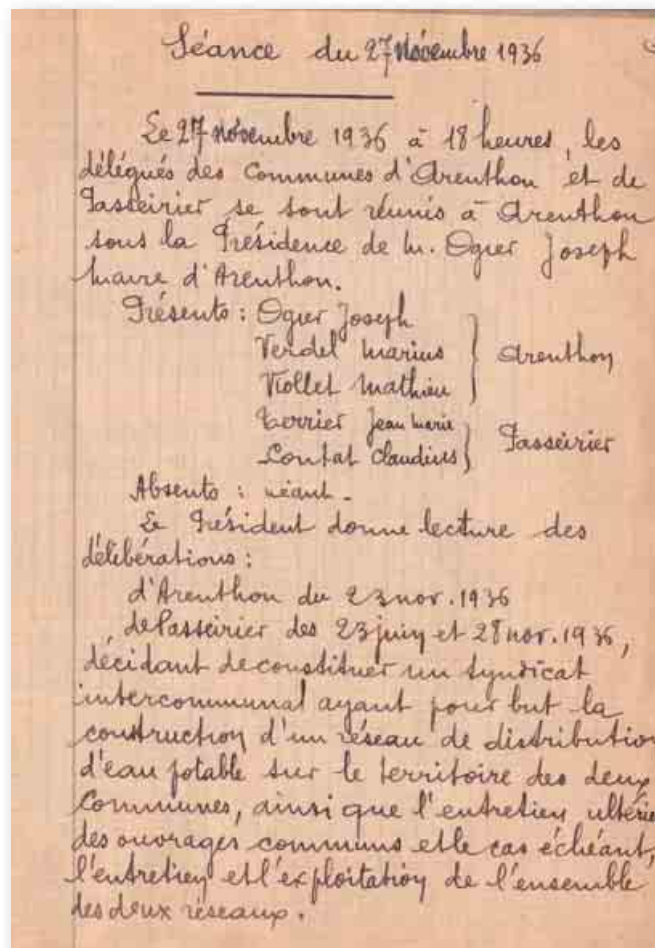 Séance du 27 Novembre 1936
Le 27 novembre 1936 à 18 heures, les
délégués des Communes d'Arenthon et de
Passeirier se sont réunis à Arenthon
sous la Présidence de M. Ogier Joseph
Maire d'Arenthon.
Présents : Ogier Joseph
Verdel Marius
Viollet Mathieu
Arenthon
Terrier Jean Marie
Contat Claudius
Passeirier
Absents : néant.
Le Président donne lecture des
délibérations :
d'Arenthon du 23 nov. 1936
de Passeirier des 23 juin et 28 nov. 1936,
décidant de constituer un syndicat
intercommunal ayant pour but la
construction d'un réseau de distribution
d'eau potable sur le territoire des deux
Communes, ainsi que l'entretien ultérie
des ouvrages communs et le cas échéant,
l'entretien et l'exploitation de l'ensemble
des deux réseaux.